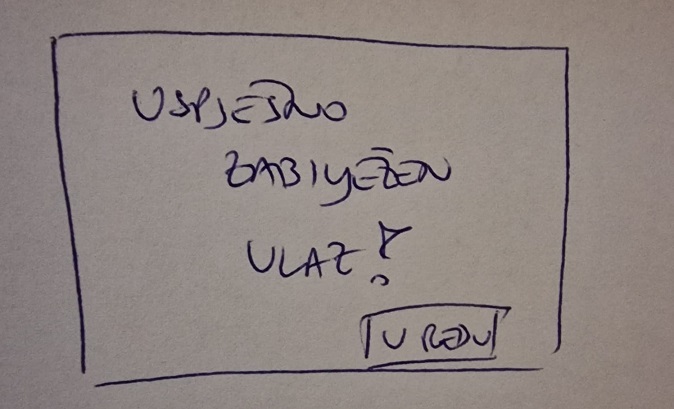 USPJEŠNO
ZABILJEŽEN
ULAZ!
U REDU